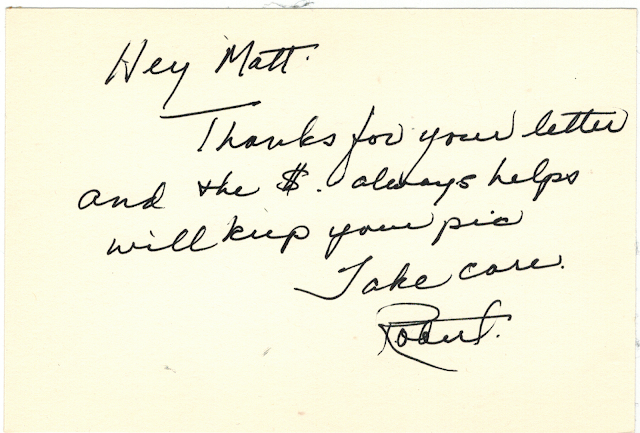 Hey Matt.
Thanks for your letter
and the $. always helps
will keep your pic
Take care.
Robert.